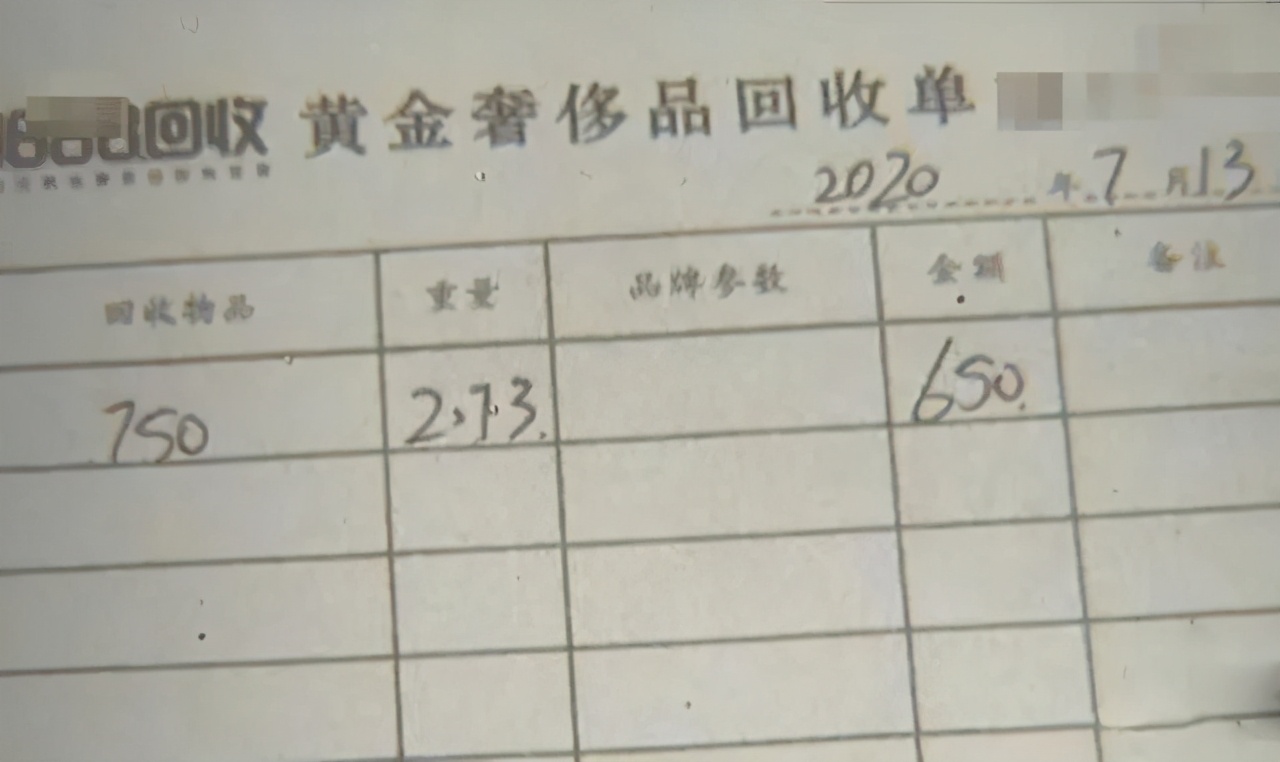 回收 黄金奢侈品回收单
2020 年 7 月 13
回收物品 重量 品牌参数 金额 备注
750 2.73. 650.